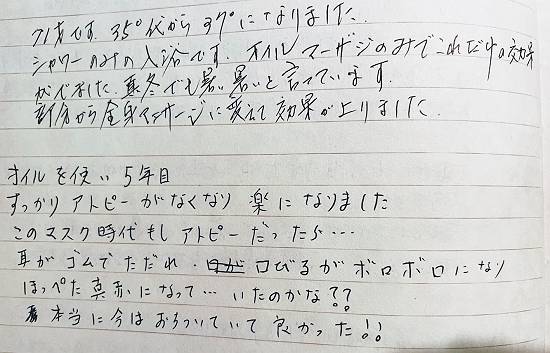 71才です。35°代から37°になりました。
シャワーのみの入浴です。オイルマーサージのみでこれだけの効果
がでました。真冬でも暑い暑いと言っています。
部分から全身マッサージに変えて効果が上りました。
オイルを使い5年目
すっかりアトピーがなくなり楽になりました
このマスク時代もしアトピーだったら…
耳がゴムでただれ、口びるがボロボロになり
ほっぺた真赤になって…いたのかな??
本当に今はおちついていて良かった!!